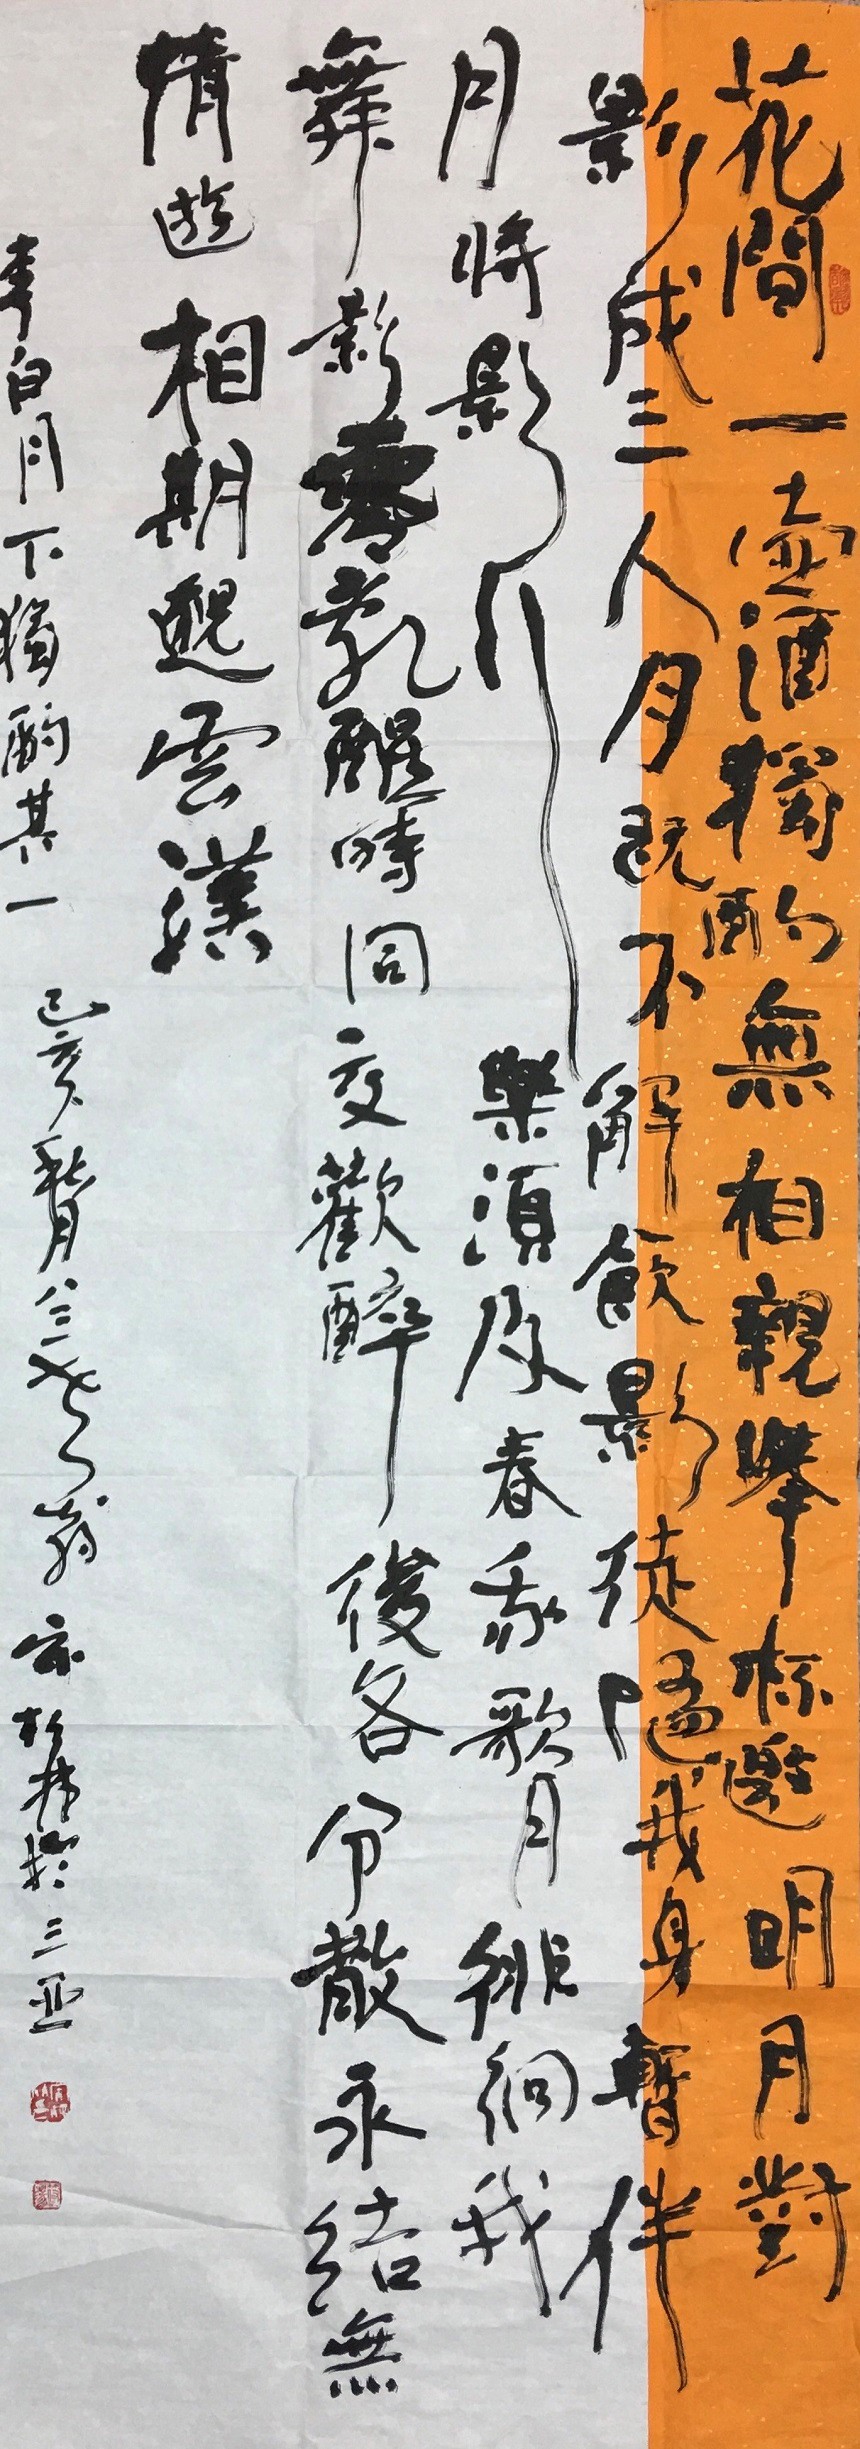 花間一壺酒獨酌無相親舉杯邀明月對
影成三人月既不解飲影徒隨我身暫伴
月將影行樂須及春我歌月徘徊我
舞影零亂醒時同交歡醉後各分散永結無
情遊相期邈雲漢
李白月下獨酌其一 己亥秋月八三老翁 於三亞